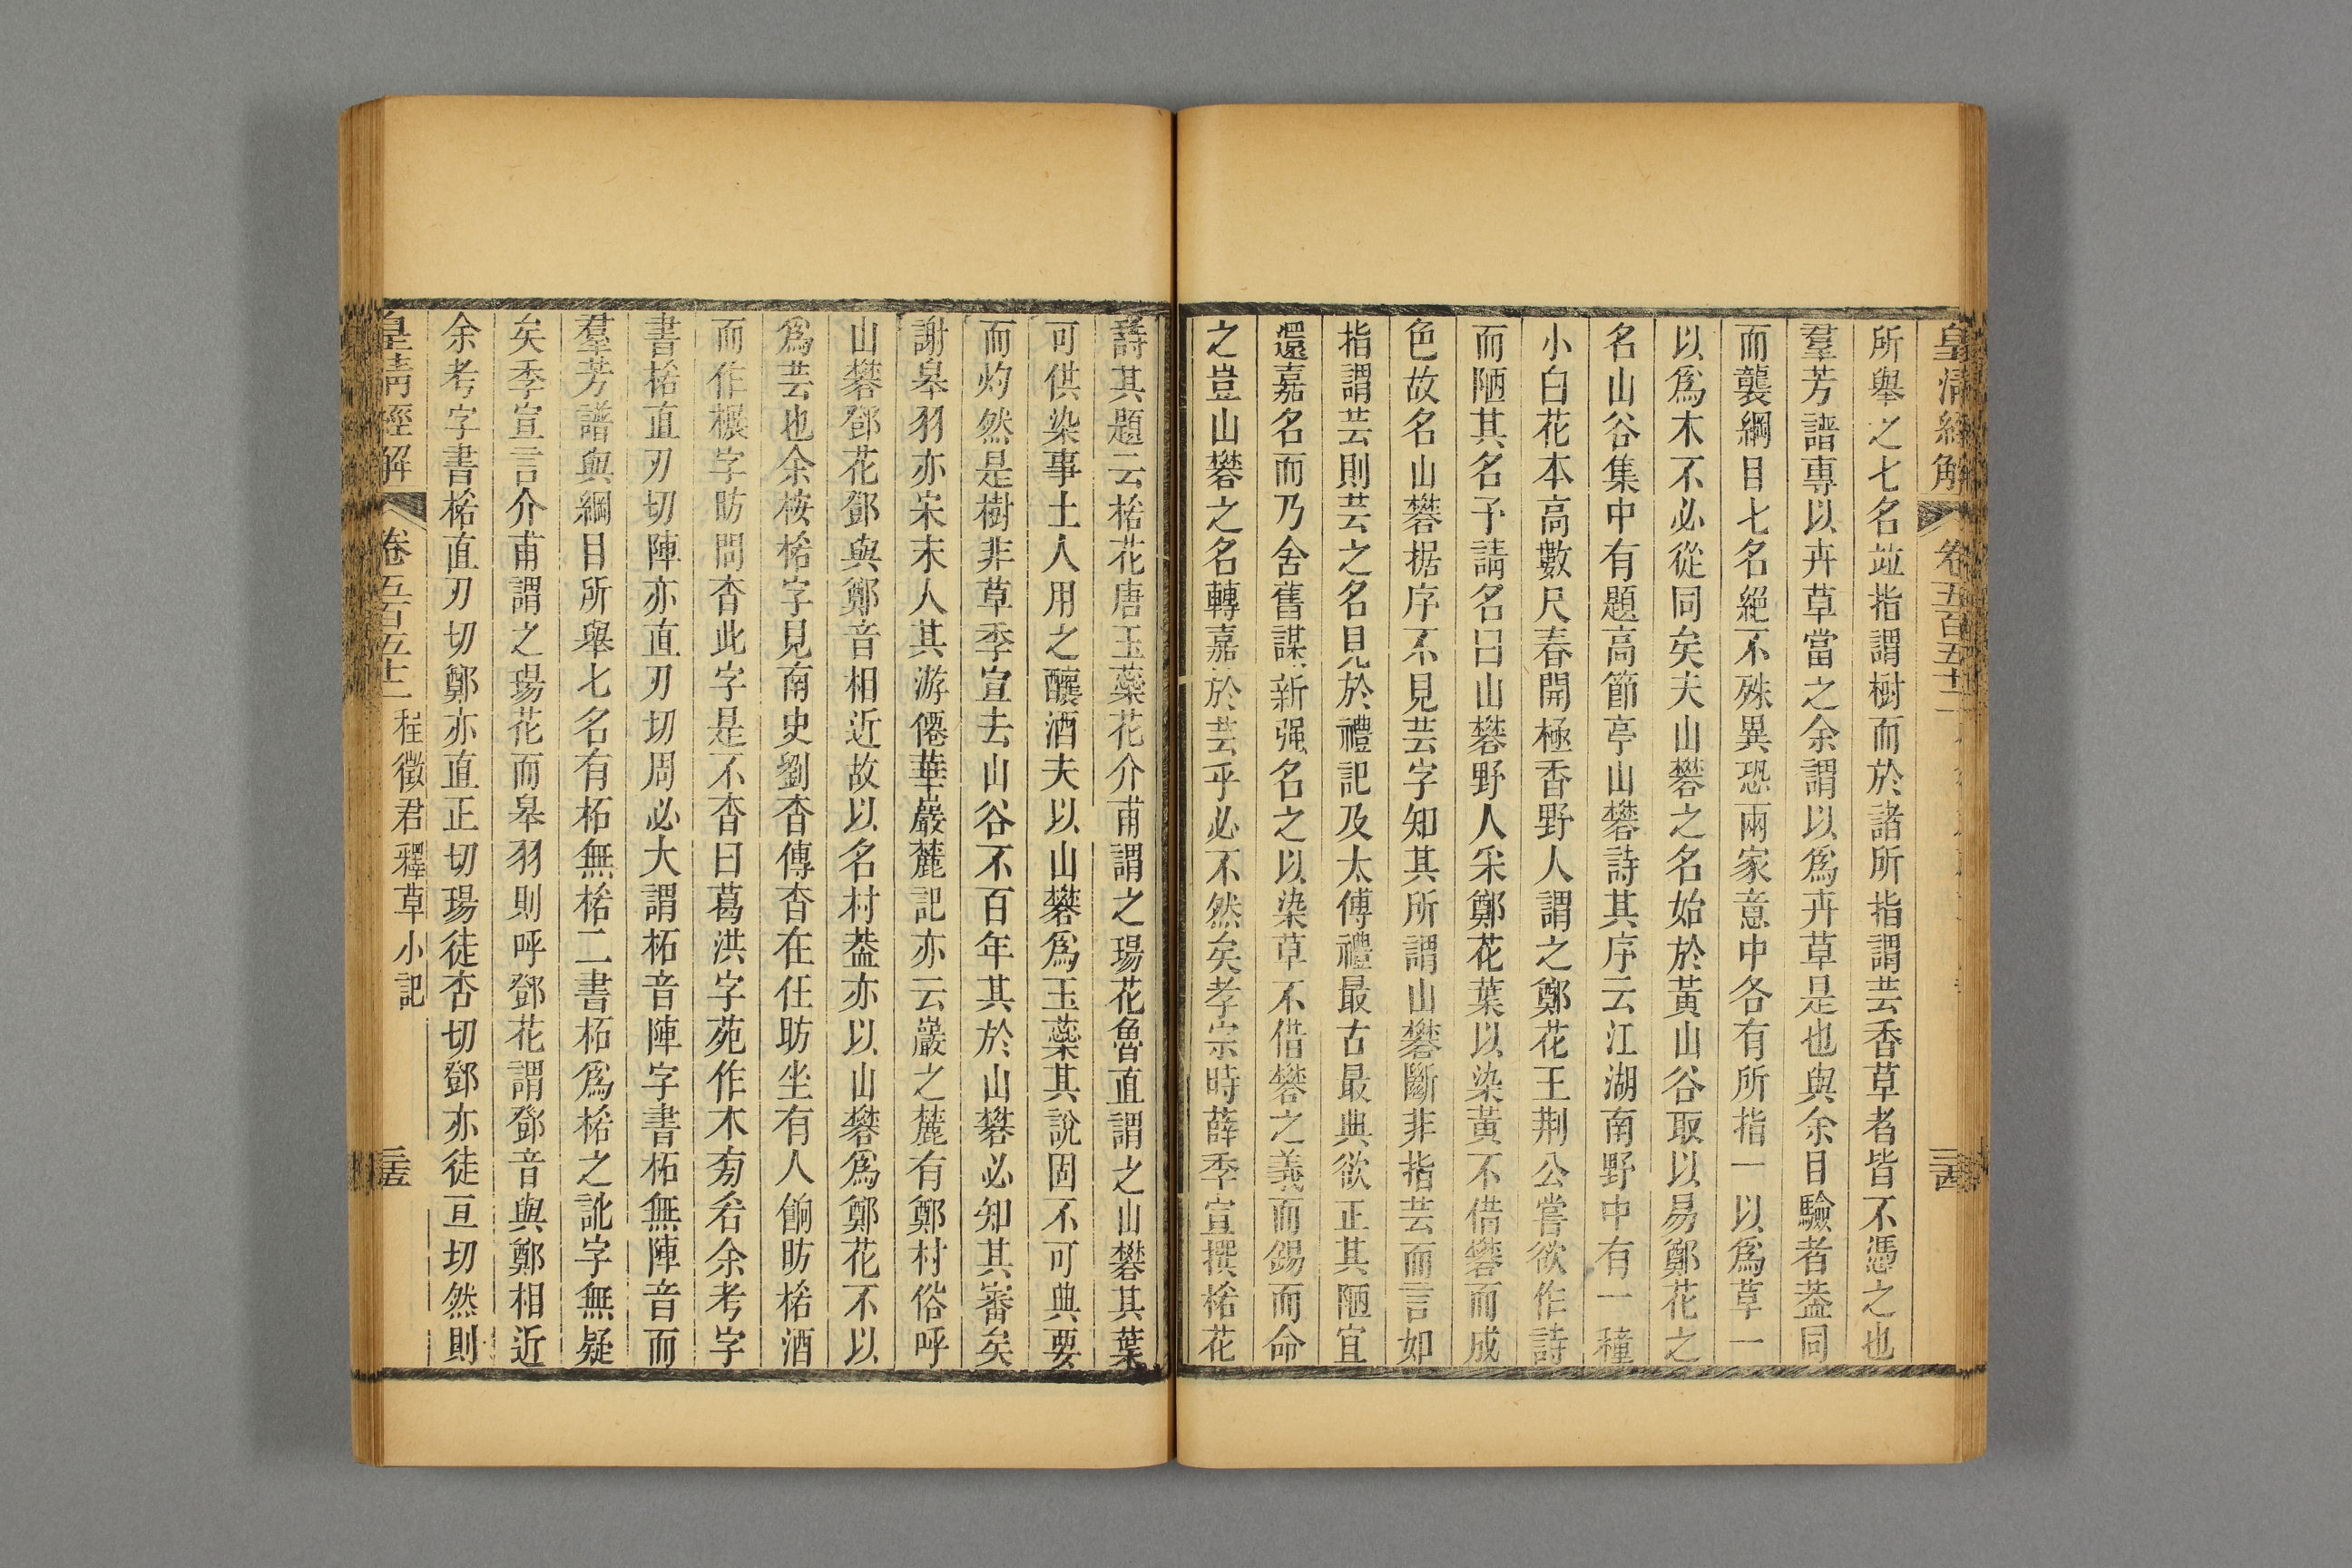 皇清經解 卷五百五十二
所舉之七名竝指謂樹而於諸所指謂芸香草者皆不憑之也
羣芳譜專以卉草當之余謂以爲卉草是也與余目驗者葢同
而襲綱目七名絕不殊異恐兩家意中各有所指一以爲草一
以爲木不必從同矣夫山礬之名始於黃山谷取以易鄭花之
名山谷集中有題高節亭山礬詩其序云江湖南野中有一種
小白花本高數尺春開極香野人謂之鄭花王荆公嘗欲作詩
而陋其名予請名曰山礬野人采鄭花葉以染黃不借礬而成
色故名山礬据序不見芸字知其所謂山礬斷非指芸而言如
指謂芸則芸之名見於禮記及太傅禮最古最典欲正其陋宜
還嘉名而乃舍舊謀新强名之以染草不借礬之義而錫而命
之豈山礬之名轉嘉於芸乎必不然矣孝宗時薛季宣撰㭲花
詩其題云㭲花唐玉蘂花介甫謂之瑒花魯直謂之山礬其葉
可供染事土人用之釀酒夫以山礬爲玉蘂其說固不可典要
而灼然是樹非草季宣去山谷不百年其於山礬必知其審矣
謝皋羽亦宋末人其游僊華巖麓記亦云巖之麓有鄭村俗呼
山礬鄧花鄧與鄭音相近故以名村葢亦以山礬爲鄭花不以
爲芸也余桉㭲字見南史劉杳傳杳在任昉坐有人餉昉㭲酒
而作榐字昉問杳此字是不杳曰葛洪字苑作木旁㕻余考字
書㭲直刃切陣亦直刃切周必大謂柘音陣字書柘無陣音而
羣芳譜與綱目所舉七名有柘無㭲二書柘爲㭲之訛字無疑
矣季宣言介甫謂之瑒花而皋羽則呼鄧花謂鄧音與鄭相近
余考字書㭲直刃切鄭亦直正切瑒徒杏切鄧亦徒亘切然則
皇清經解 卷五百五十二 程徵君釋草小記 三五